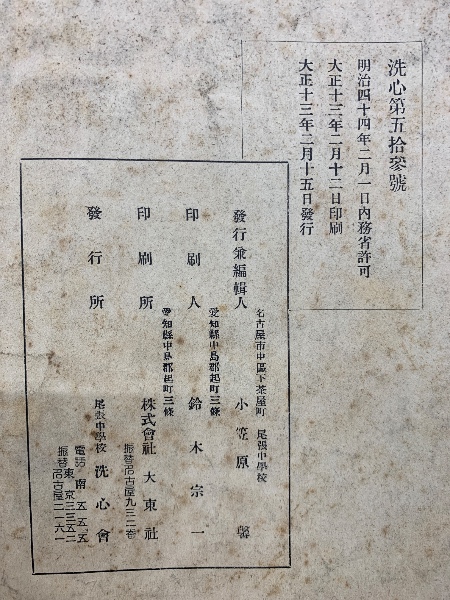 洗心第五拾參號
明治四十四年二月一日內務省許可
大正十三年二月十二日印刷
大正十三年二月十五日發行
名古屋市中區下茶屋町 尾張中學校
發行兼編輯人 小笠原
愛知縣中島郡起町三條
印刷人 鈴木宗一
愛知縣中島郡起町三條
印刷所 株式會社大東社
振替名古屋九三二番
發行所 尾張中學校 洗心會
電話南五五五
振替東京三三五二
名古屋二一六一